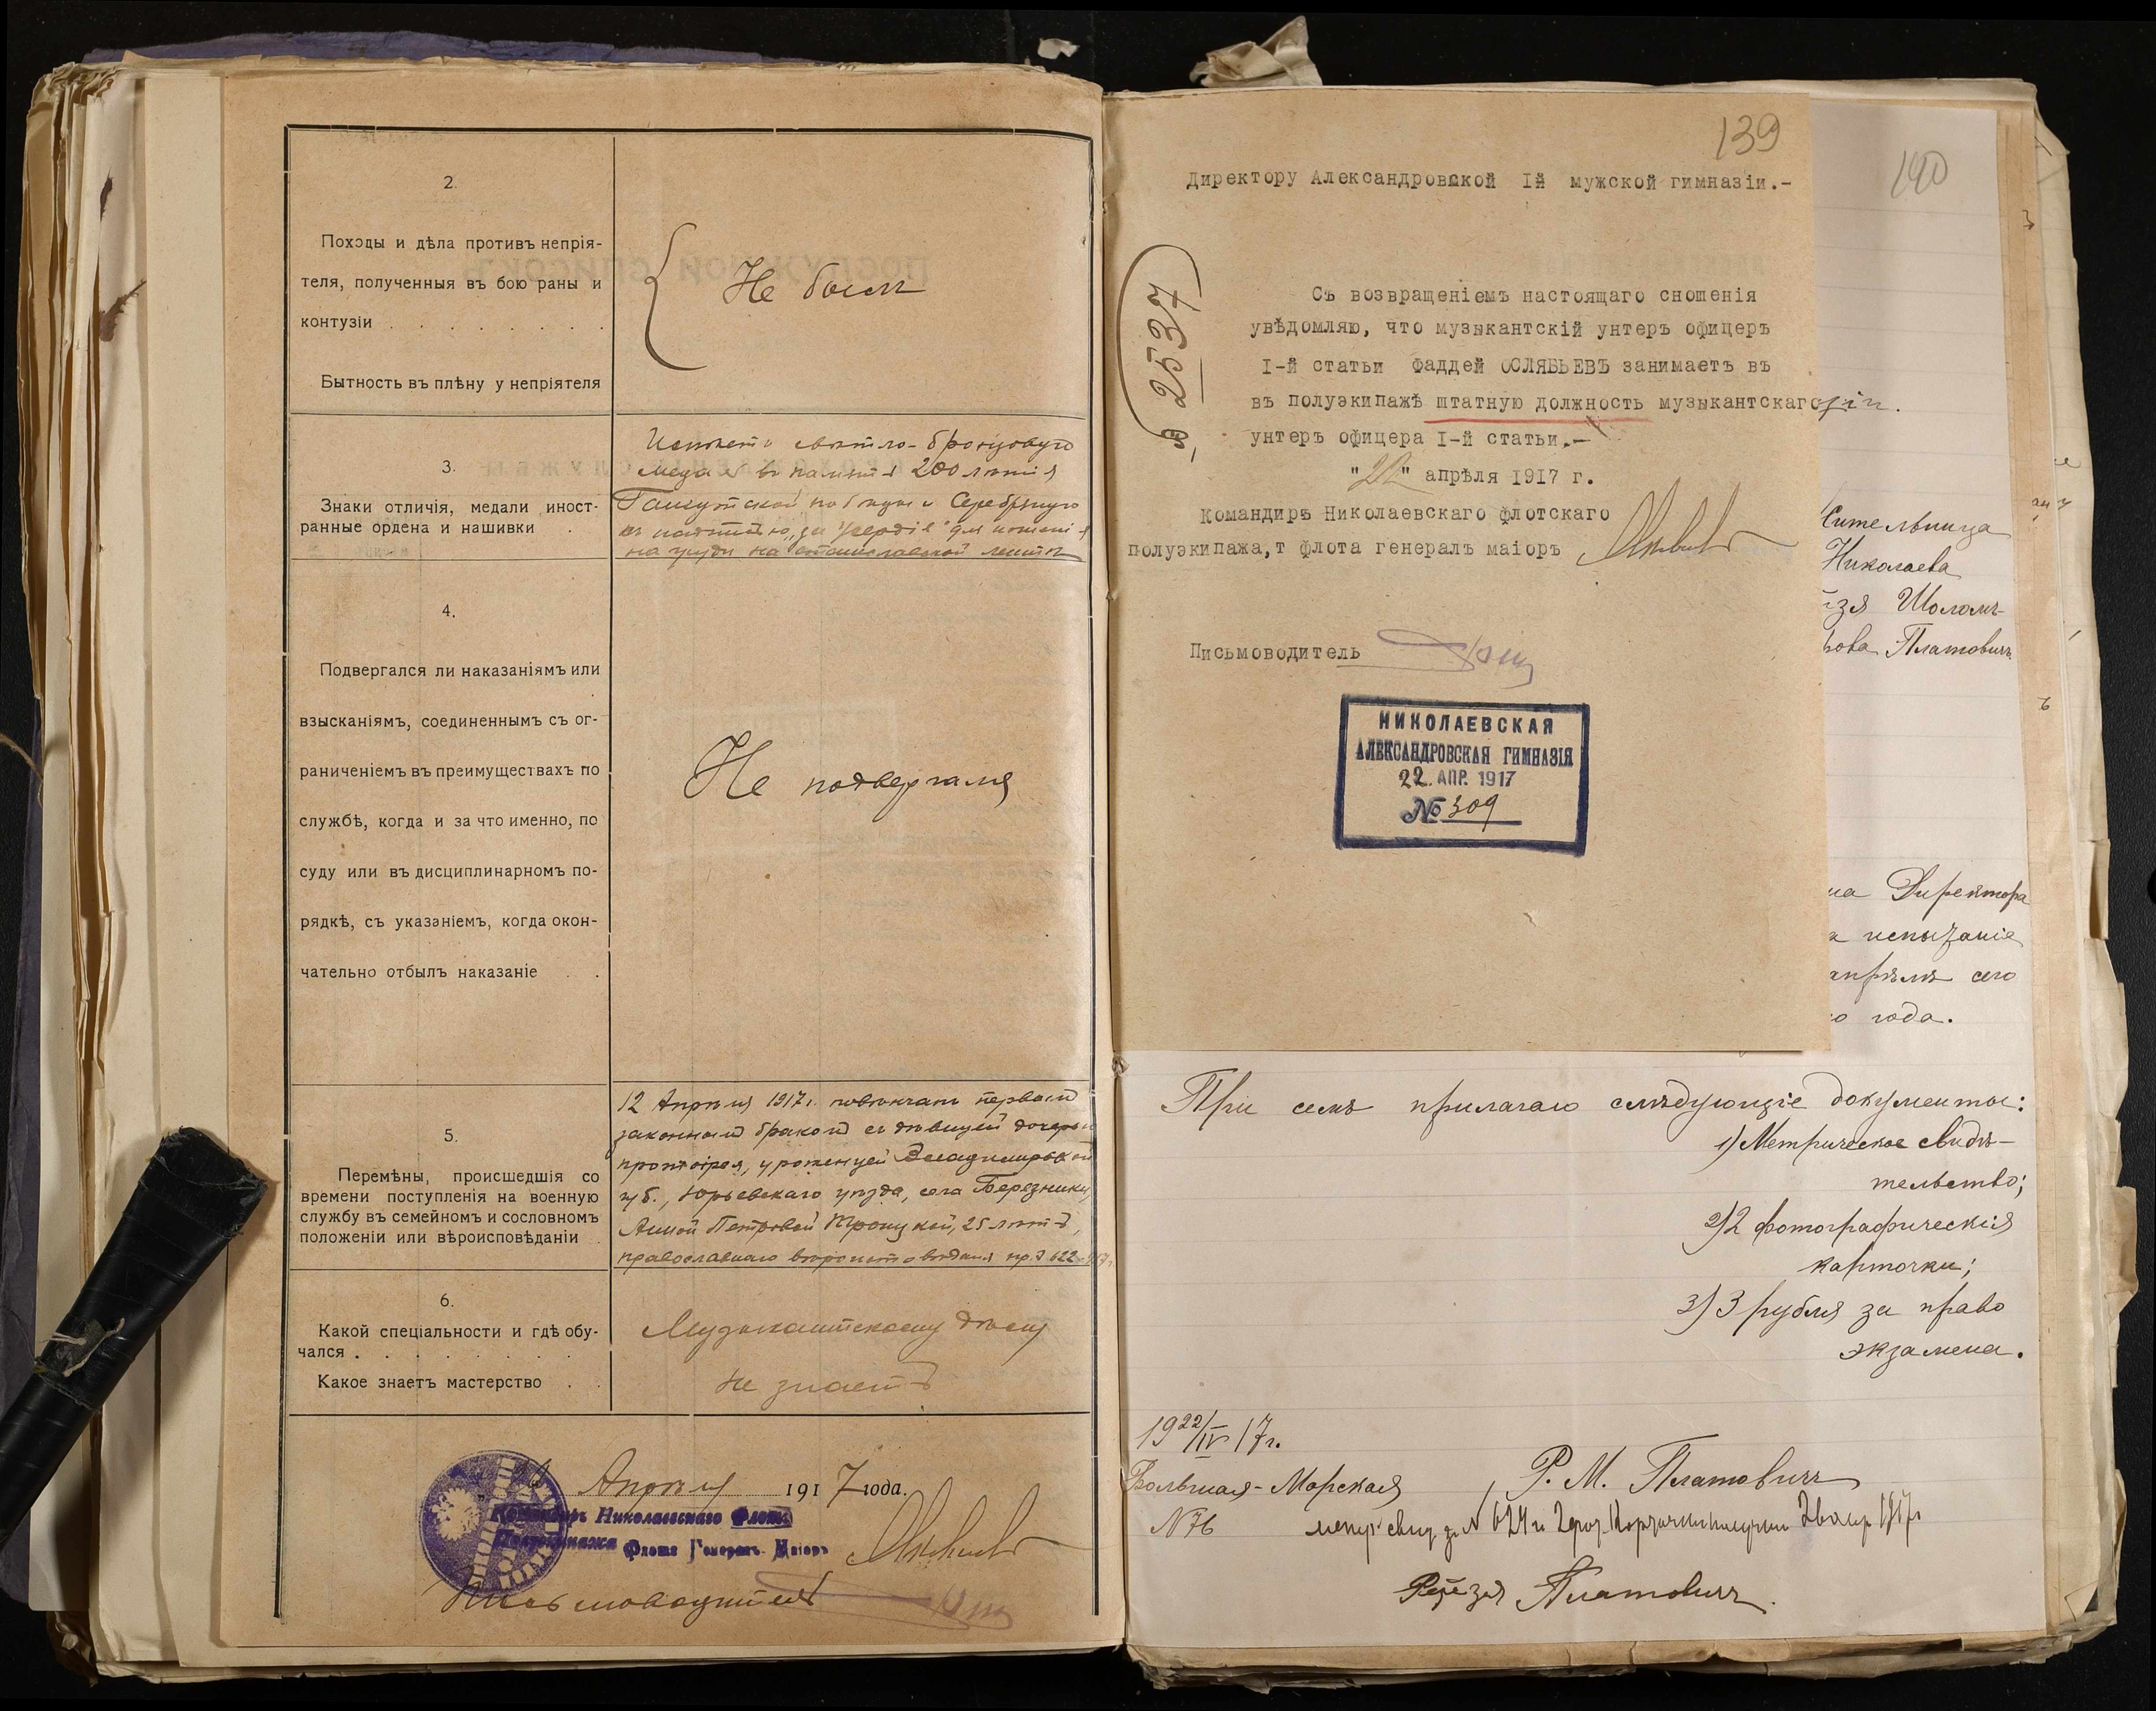 2.
Походы и дѣла противъ непрія-
теля, полученныя въ бою раны и
контузіи . . . . . . . .
Бытность въ плѣну у непріятеля
Не былъ
3.
Знаки отличія, медали иност-
ранные ордена и нашивки .
Имѣетъ свѣтло-бронзовую
медаль въ память 200 лѣтія
Гангутской побѣды и Серебряную
съ надписью „за усердіе" для ношенія
на груди на станиславской лентѣ
4.
Подвергался ли наказаніямъ или
взысканіямъ, соединеннымъ съ ог-
раниченіемъ въ преимуществахъ по
службѣ, когда и за что именно, по
суду или въ дисциплинарномъ по-
рядкѣ, съ указаніемъ, когда окон-
чательно отбылъ наказаніе . .
Не подвергался
5.
Перемѣны, происшедшія со
времени поступленія на военную
службу въ семейномъ и сословномъ
положеніи или вѣроисповѣданіи .
12 Апрѣля 1917г. повѣнчанъ первымъ
законнымъ бракомъ съ дѣвицей дочерью
протоірея, уроженцей Владимирской
губ., Юрьевскаго уѣзда, села Березники,
Анной Петровой Троицкой, 25 лѣтъ,
православнаго вѣроисповѣданія пр. № 622
6.
Какой спеціальности и гдѣ обу-
чался . . . . . . . . .
Какое знаетъ мастерство . .
Музыкантскому дѣлу
Не знаетъ
Апрѣля 1917 года.
Командиръ Николаевскаго Флот.
Полуэкипажа Флота Генералъ-Маіоръ
Письмоводитель
139
Директору Александровской Iй мужской гимназіи.-
№ 2537
Съ возвращеніемъ настоящаго сношенія
увѣдомляю, что музыкантскій унтеръ офицеръ
I-й статьи Фаддей ОСЛЯБЬЕВЪ занимаетъ въ
въ полуэкипажѣ штатную должность музыкантскаго
унтеръ офицера I-й статьи.-
"22" апрѣля 1917 г.
Командиръ Николаевскаго флотскаго
полуэкипажа,т флота генералъ маіоръ
Письмоводитель
НИКОЛАЕВСКАЯ
АЛЕКСАНДРОВСКАЯ ГИМНАЗІЯ
22. АПР. 1917
№ 309
140
зіи.
жительница
Николаева
Шоломъ-
Платовичъ
на Директора
испытаніе
апрѣлѣ сего
года.
При семъ прилагаю слѣдующіе документы:
1) Метрическое свидѣ-
тельство;
2) 2 фотографическія
карточки;
3) 3 рубля за право
экзамена.
19 22/IV 17г.
Большая-Морская
№ 76
Р. М. Платовичъ
метр. свид. за № 624 и
1917г
Рейзя Платовичъ.